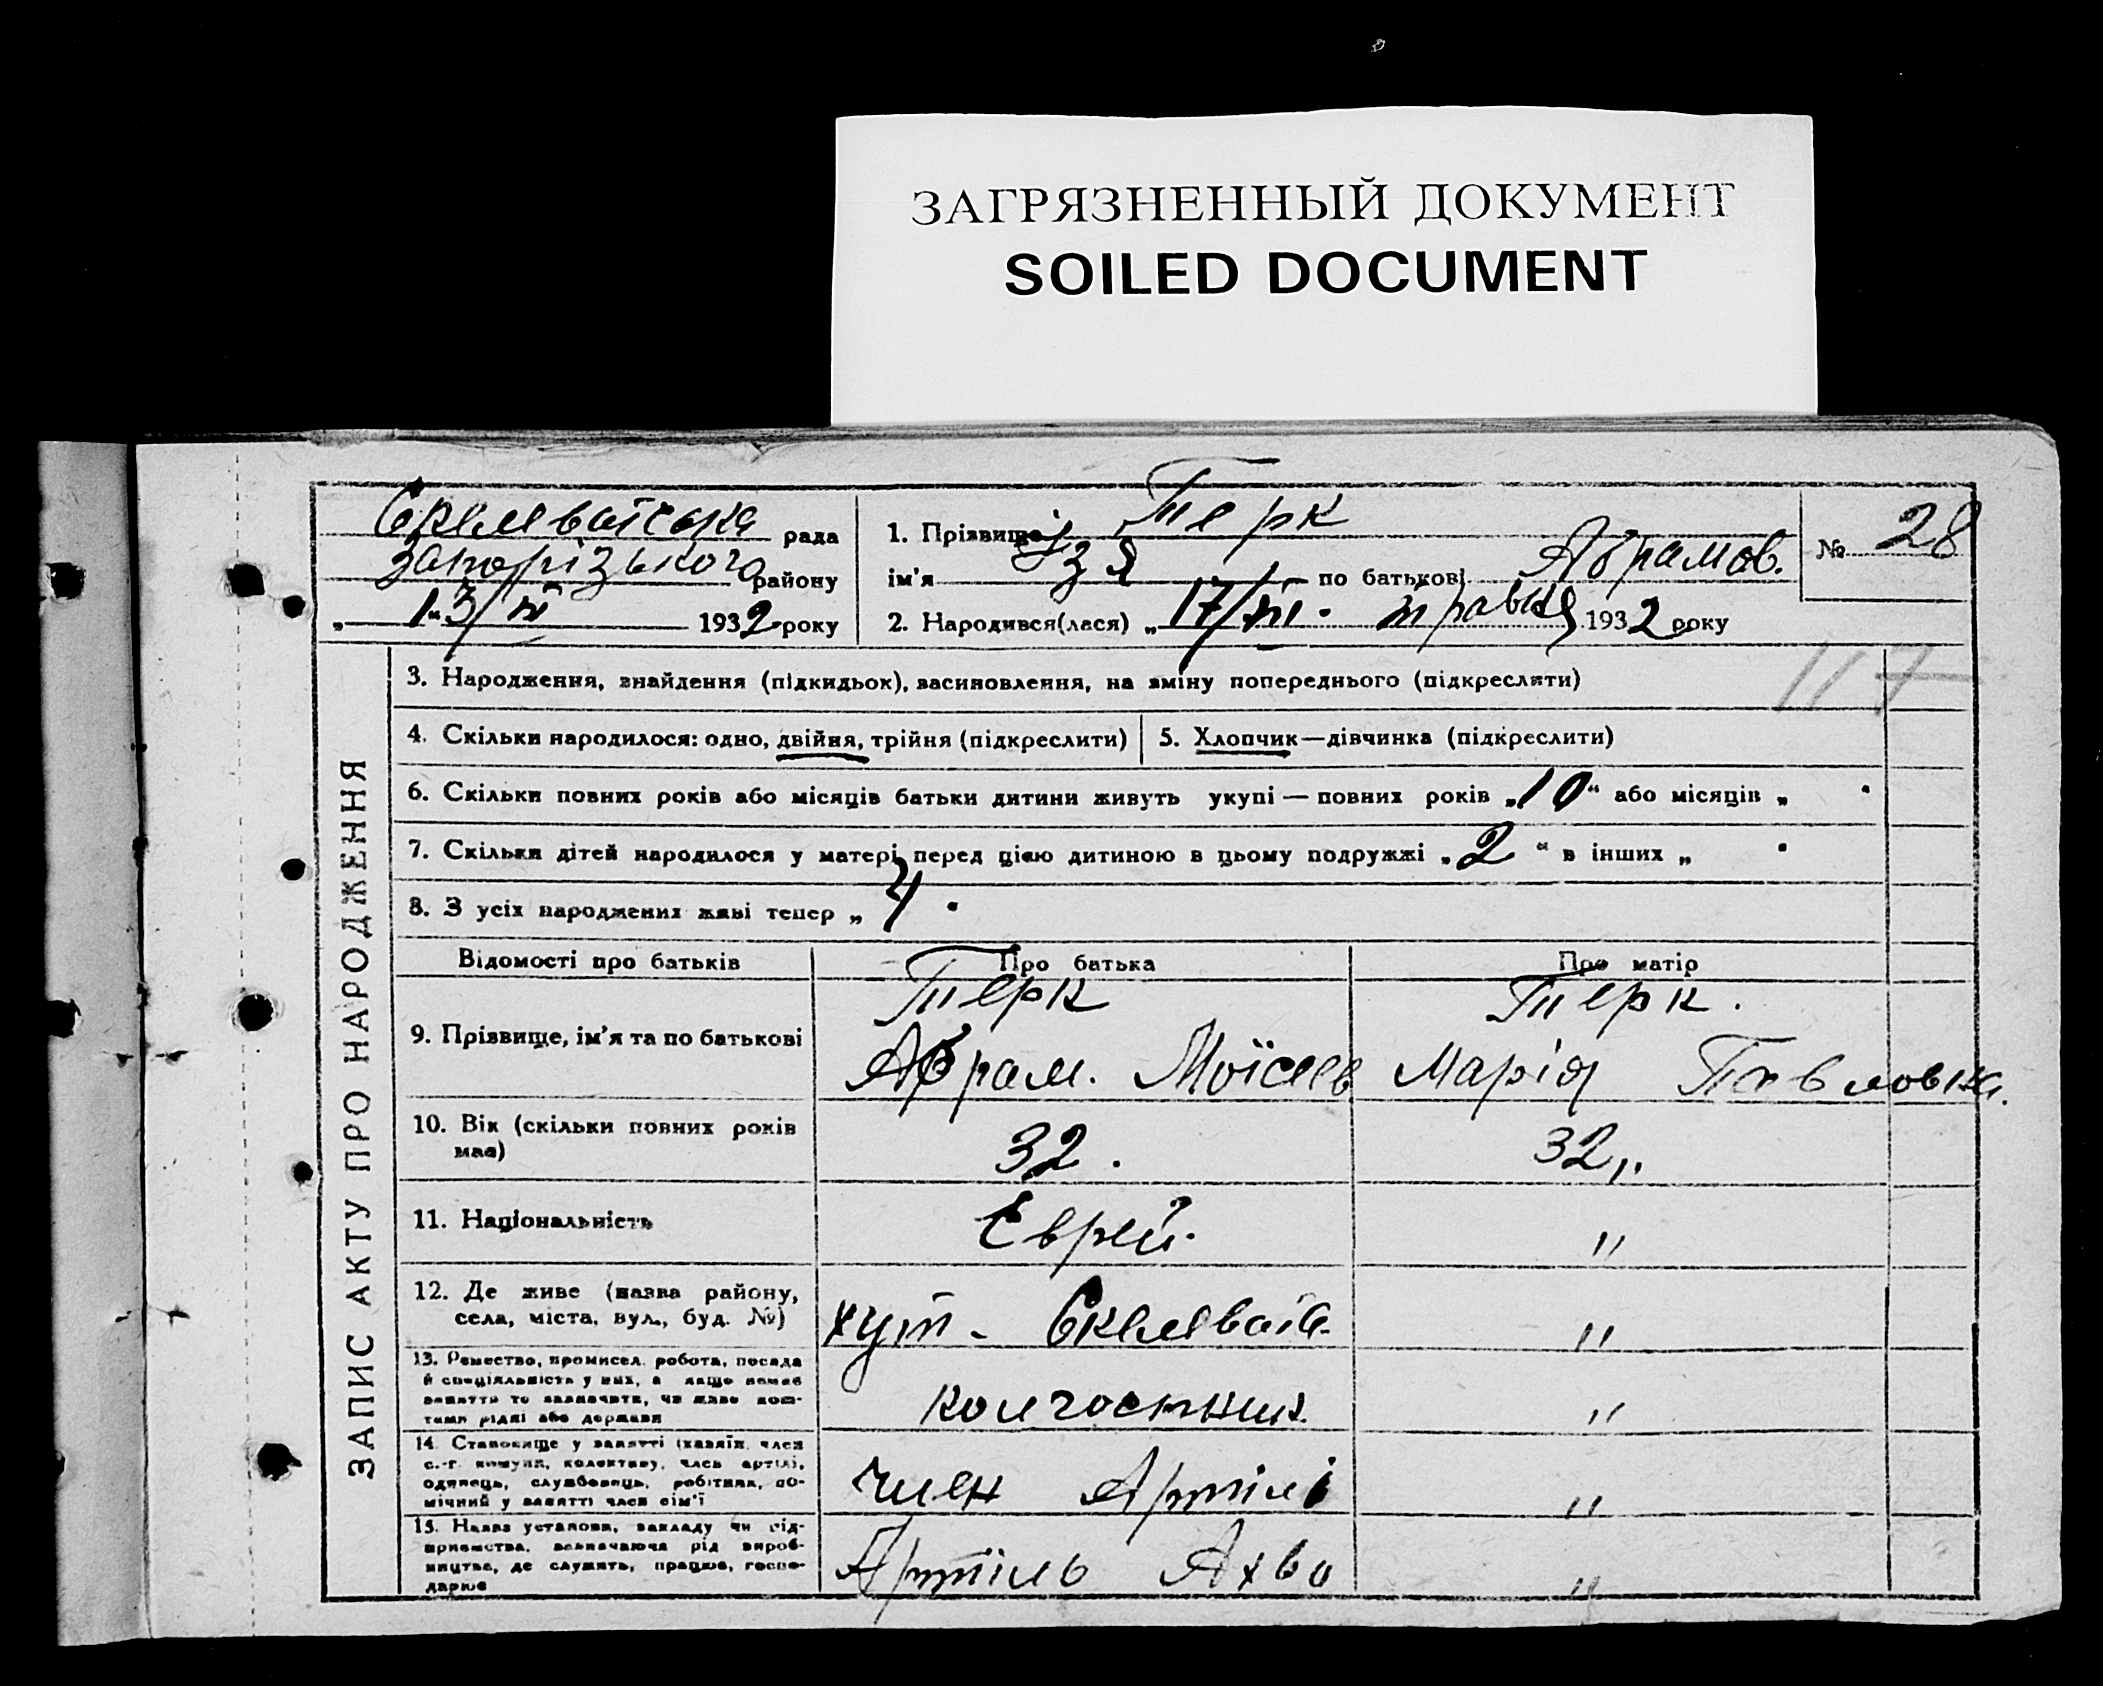 ЗАГРЯЗНЕННЫЙ ДОКУМЕНТ
SOILED DOCUMENT
рада
Запорізького району
„ 13/VI 1932 року
1. Прізвище Терк
ім'я Ізя по батькові Абрамов.
2. Народився(лася) „ 17/VI. травня 1932 року
№ 28
117
ЗАПИС АКТУ ПРО НАРОДЖЕННЯ
3. Народження, знайдення (підкидьок), засиновлення, на зміну попереднього (підкреслити)
4. Скільки народилося: одно, двійня, трійня (підкреслити)
5. Хлопчик—дівчинка (підкреслити)
6. Скільки повних років або місяців батьки дитини живуть укупі — повних років „10“ або місяців „ "
7. Скільки дітей народилося у матері перед цією дитиною в цьому подружжі „2“ в інших „ "
8. З усіх народжених живі тепер „ 4 "
Відомості про батьків
Про батька
Про матір
9. Прізвище, ім'я та по батькові
Терк
Абрам. Моїсеев
Терк.
Марія Павловна.
10. Вік (скільки повних років має)
32.
32„
11. Національність
Еврей.
"
12. Де живе (назва району,
села, міста, вул., буд. №)
хут-
"
13. Ремество, промисел, робота, посада
й спеціяльність у них, а якщо немає
заняття то зазначити, чи живе кош-
тами рідні або держави
колгоспник
"
14. Становище у занятті (хазяїн, член
с.-г. комуни, колективу, член артілі,
одинець, службовець, робітник, по-
мічний у занятті член сім'ї
член Артілі
"
15. Назва установи, закладу чи під-
приємства, зазначаючи рід вироб-
ництва, де служить, працює, госпо-
дарює
Артіль Ахво
"